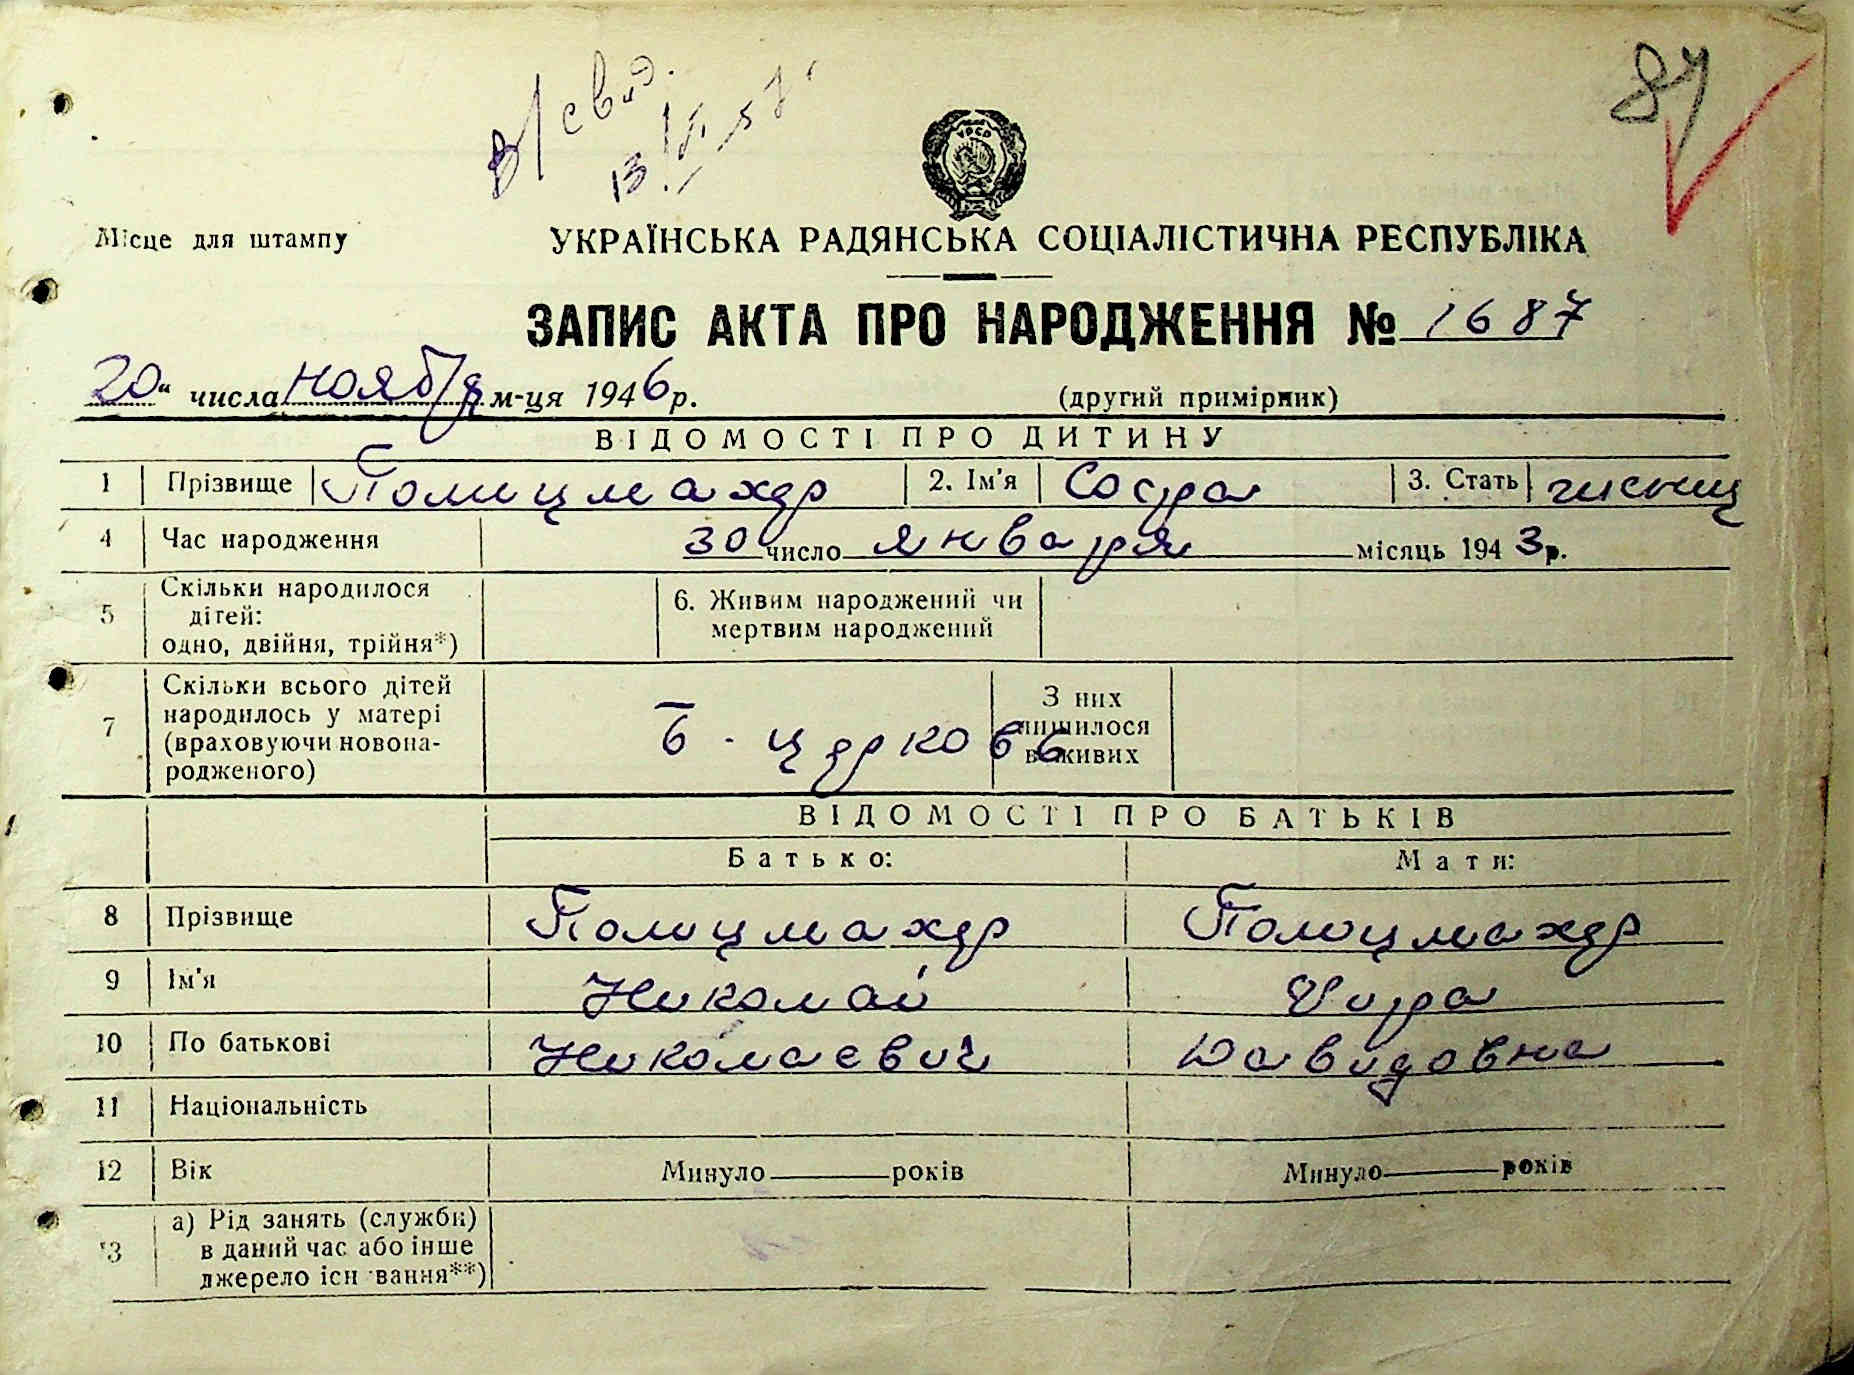 В/свид.
13/VI-57.
87
УРСР
Місце для штампу
УКРАЇНСЬКА РАДЯНСЬКА СОЦІАЛІСТИЧНА РЕСПУБЛІКА
ЗАПИС АКТА ПРО НАРОДЖЕННЯ № 1687
20" числа ноября м-ця 1946 р.
(другий примірник)
ВІДОМОСТІ ПРО ДИТИНУ
1 Прізвище Полицмахер 2. Ім'я Сара 3. Стать
4 Час народження 30 число января місяць 1943 р.
5 Скільки народилося дітей: одно, двійня, трійня*)
6. Живим народжений чи мертвим народжений
7 Скільки всього дітей народилось у матері (враховуючи новонародженого)
Б-церковь
З них лишилося в живих
ВІДОМОСТІ ПРО БАТЬКІВ
Батько: Мати:
8 Прізвище Полицмахер Полицмахер
9 Ім'я Николай
10 По батькові Николаевич Давидовна
11 Національність
12 Вік Минуло років Минуло років
13 а) Рід занять (служби) в даний час або інше джерело існування**)